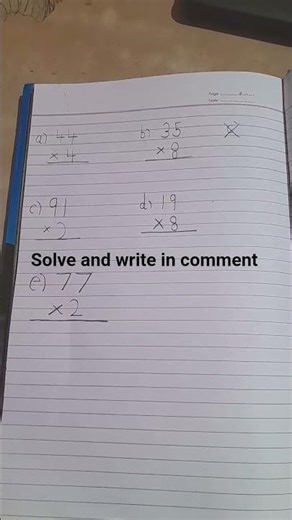 a) 44
× 4
b) 35
× 8
c) 91
× 2
d) 19
× 8
Solve and write in comment
e) 77
× 2